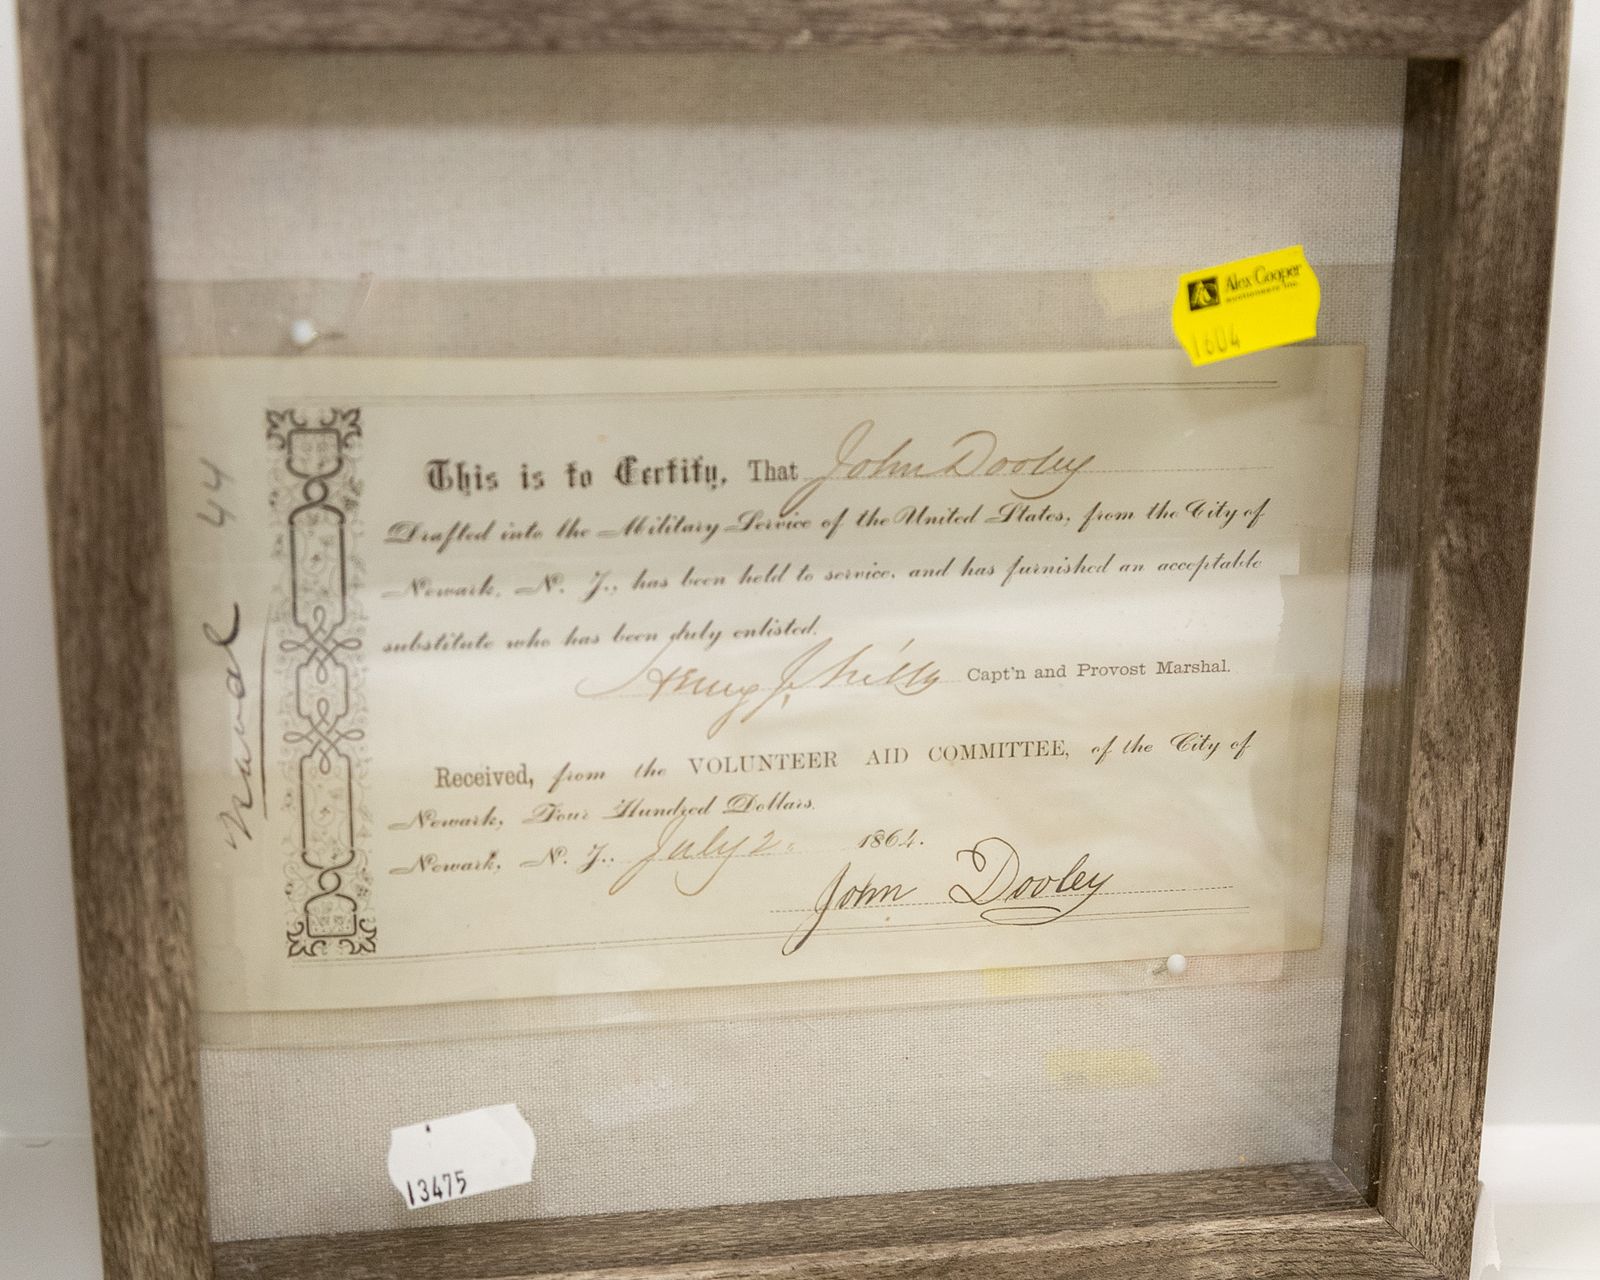 Alex Cooper
auctioneers inc.
1604
Naval 44
This is to Certify, That John Dooley
Drafted into the Military Service of the United States, from the City of
Newark, N. J., has been held to service, and has furnished an acceptable
substitute who has been duly enlisted.
Capt'n and Provost Marshal.
Received, from the VOLUNTEER AID COMMITTEE, of the City of
Newark, Four Hundred Dollars.
Newark, N. J., July 2. 1864.
John Dooley
13475